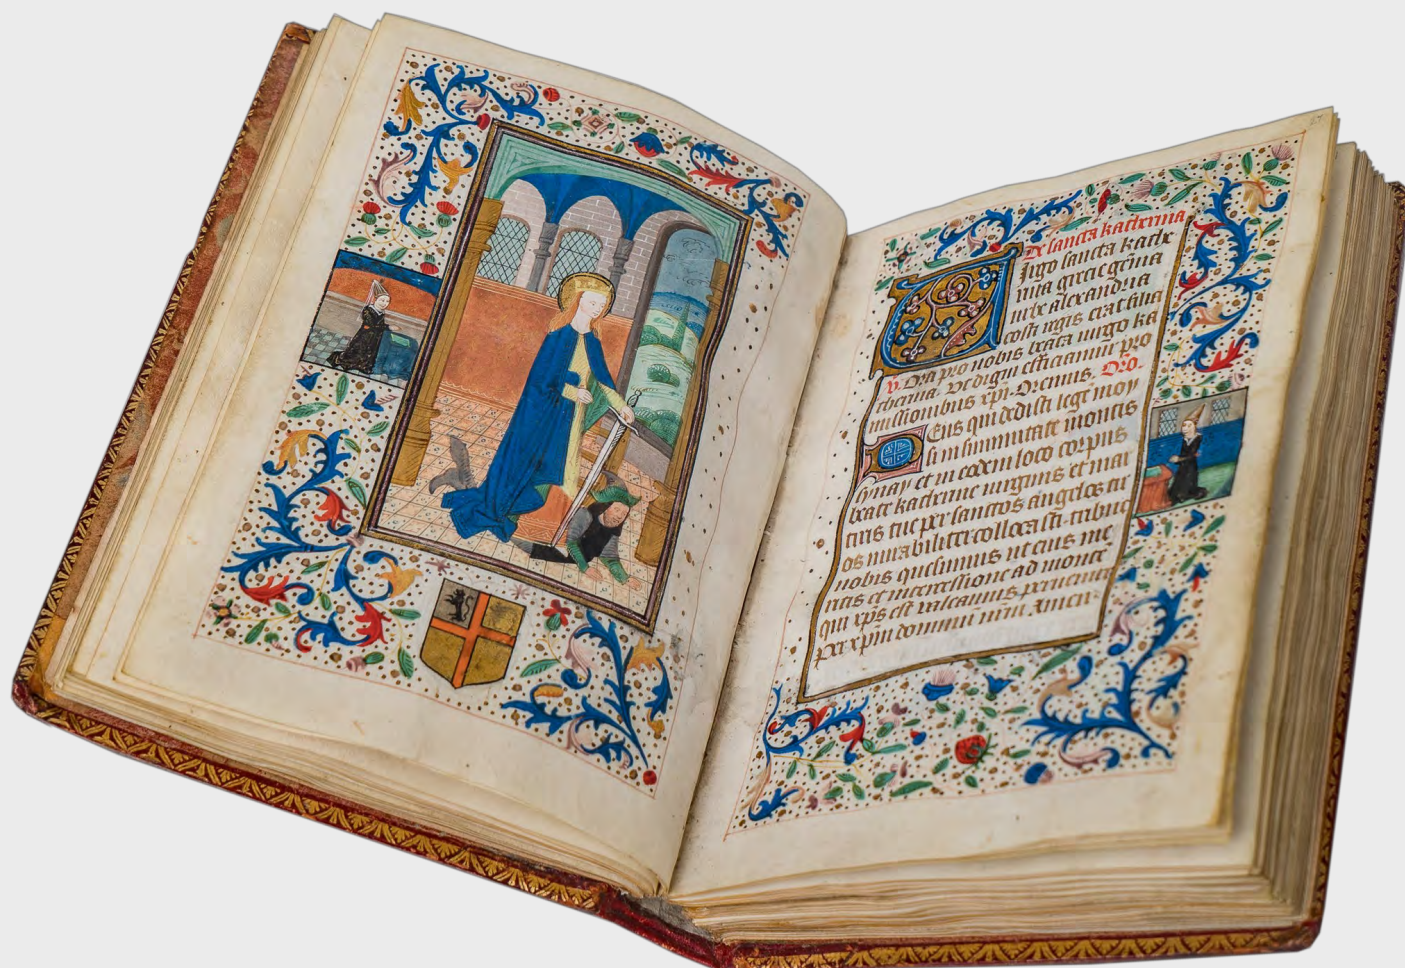 De sancta katherina
Virgo sancta kathe
rina grecie gema
urbe alexandria
costi regis erat filia
v. Ora pro nobis beata virgo ka
therina. Ut digni efficiamur pro
missionibus xpi. Oremus. Oro.
Deus qui dedisti lege moy
si in summitate montis
synay et in eodem loco corpus
beate katherine virginis et mar
tiris tue per sanctos angelos tu
os mirabiliter collocasti. tribue
nobis quesumus ut eius me
ritis et intercessione ad monte
qui xps est valeamus pervenire
per xpm dominum nrm. Amen.